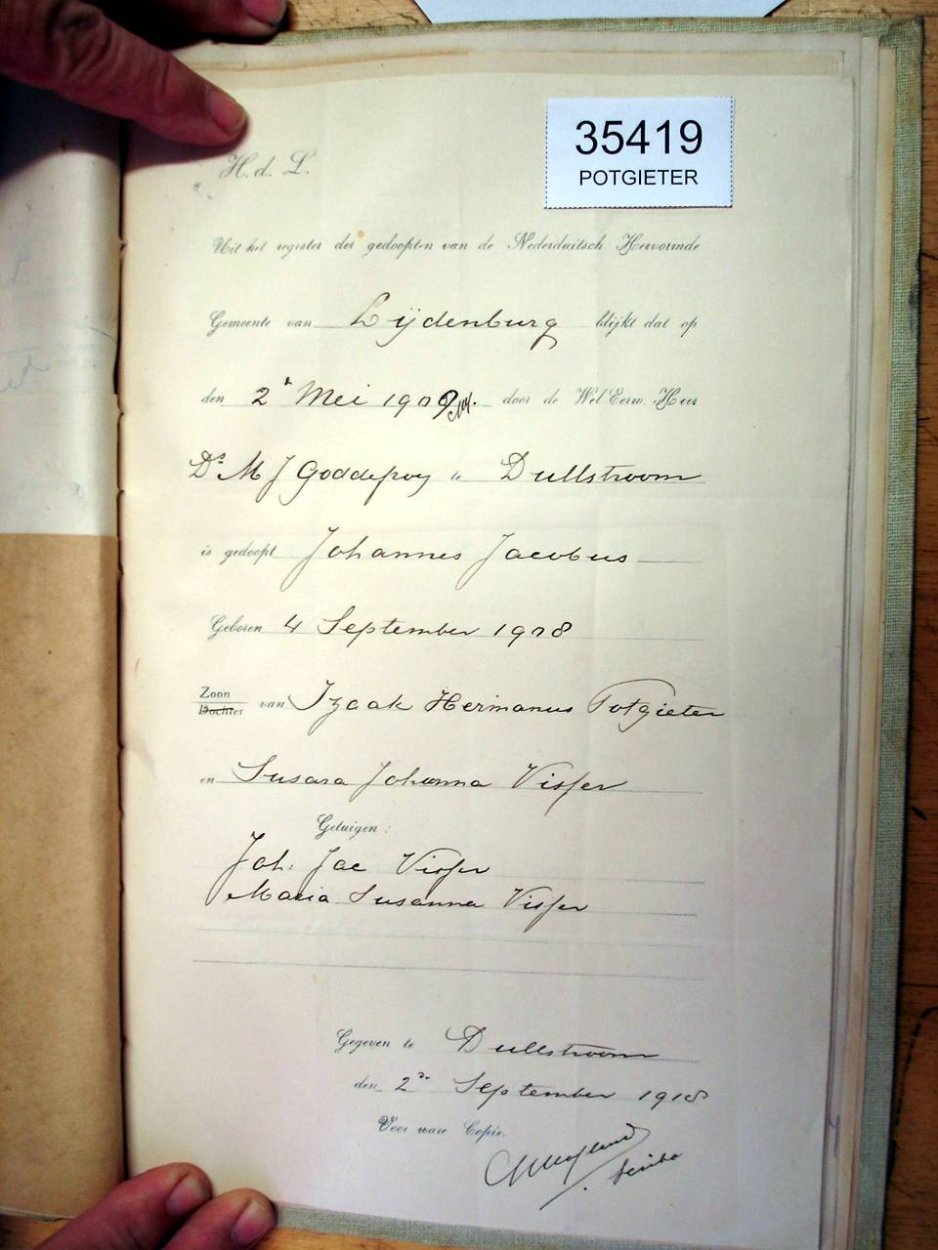 35419
POTGIETER
H. d. L.
Uit het register der gedoopten van de Nederduitsch Hervormde
Gemeente van Lijdenburg blijkt dat op
den 2e Mei 1909 door de Wel Eerw. Heer
Ds M J Goddefroy te Dullstroom
is gedoopt Johannes Jacobus
Geboren 4 September 1908
Zoon
Dochter van Izaak Hermanus Potgieter
en Susara Johanna Visser
Getuigen:
Joh: Jac Visser
Maria Susanna Visser
Gegeven te Dullstroom
den 2de September 1918
Voor ware Copie.
Scriba